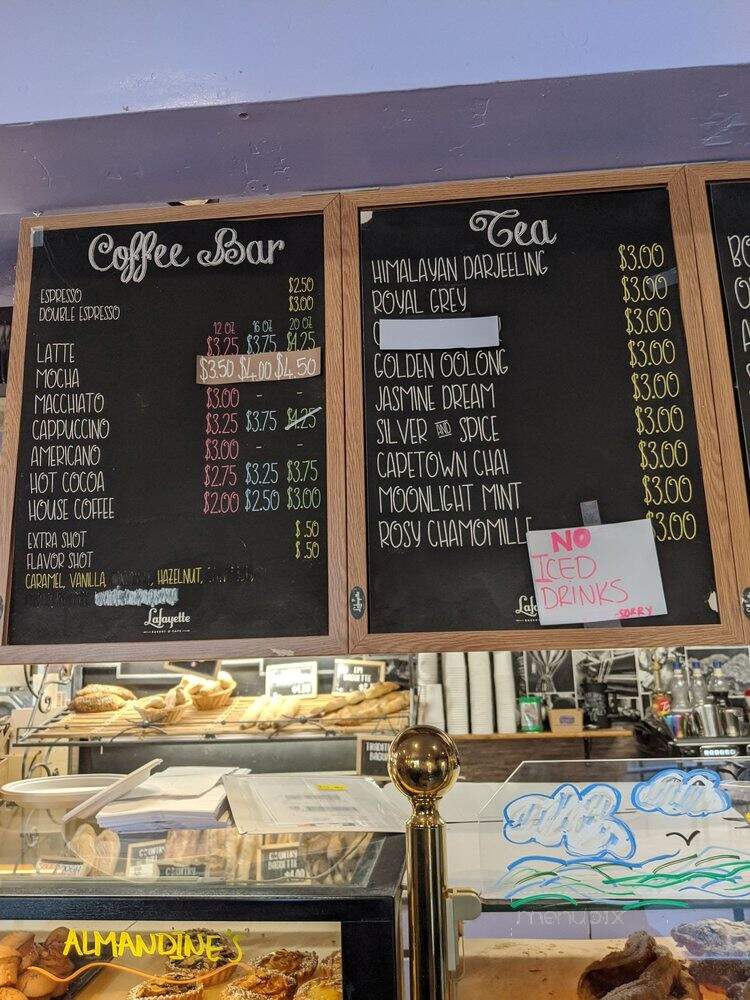 Coffee Bar
ESPRESSO $2.50
DOUBLE ESPRESSO $3.00
12 OZ 16 OZ 20 OZ
LATTE $3.25 $3.75 $4.25
MOCHA $3.50 $4.00 $4.50
MACCHIATO $3.00 - -
CAPPUCCINO $3.25 $3.75 $4.25
AMERICANO $3.00 - -
HOT COCOA $2.75 $3.25 $3.75
HOUSE COFFEE $2.00 $2.50 $3.00
EXTRA SHOT $.50
FLAVOR SHOT $.50
CARAMEL, VANILLA, HAZELNUT,
Lafayette
BAKERY & CAFE
Tea
HIMALAYAN DARJEELING $3.00
ROYAL GREY $3.00
$3.00
GOLDEN OOLONG $3.00
JASMINE DREAM $3.00
SILVER AND SPICE $3.00
CAPETOWN CHAI $3.00
MOONLIGHT MINT $3.00
ROSY CHAMOMILLE $3.00
NO
ICED
DRINKS
-SORRY
ALMANDINE'S
COUNTRY
BAGUETTE
menupix